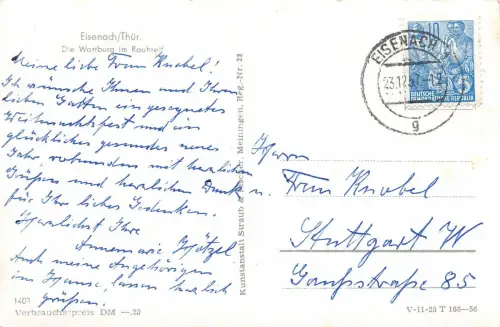 Eisenach/Thür.
Die Wartburg im Rauhreif
Meine liebe Frau Knobel!
Ich wünsche Ihnen und Ihrem
lieben Gatten ein gesegnetes
Weihnachtsfest und ein
glückliches gesundes neues
Jahr, verbunden mit herzlichen
Grüßen und herzlichen Dank
für Ihr liebes Gedenken.
Herzlichst Ihre
Annemarie
Auch meine Angehörigen
im Hause, lassen herzlich
grüßen.
1407
Verbraucherpreis DM —.20
Kunstanstalt Straub & Meiningen, Reg.-Nr. 28
EISENACH
23.12.57
g
10
DEUTSCHE
DEMOKRATISCHE REPUBLIK
Herrn
u. Frau Knobel
Stuttgart W
Gaußstraße 85
V-11-28 T 168—56